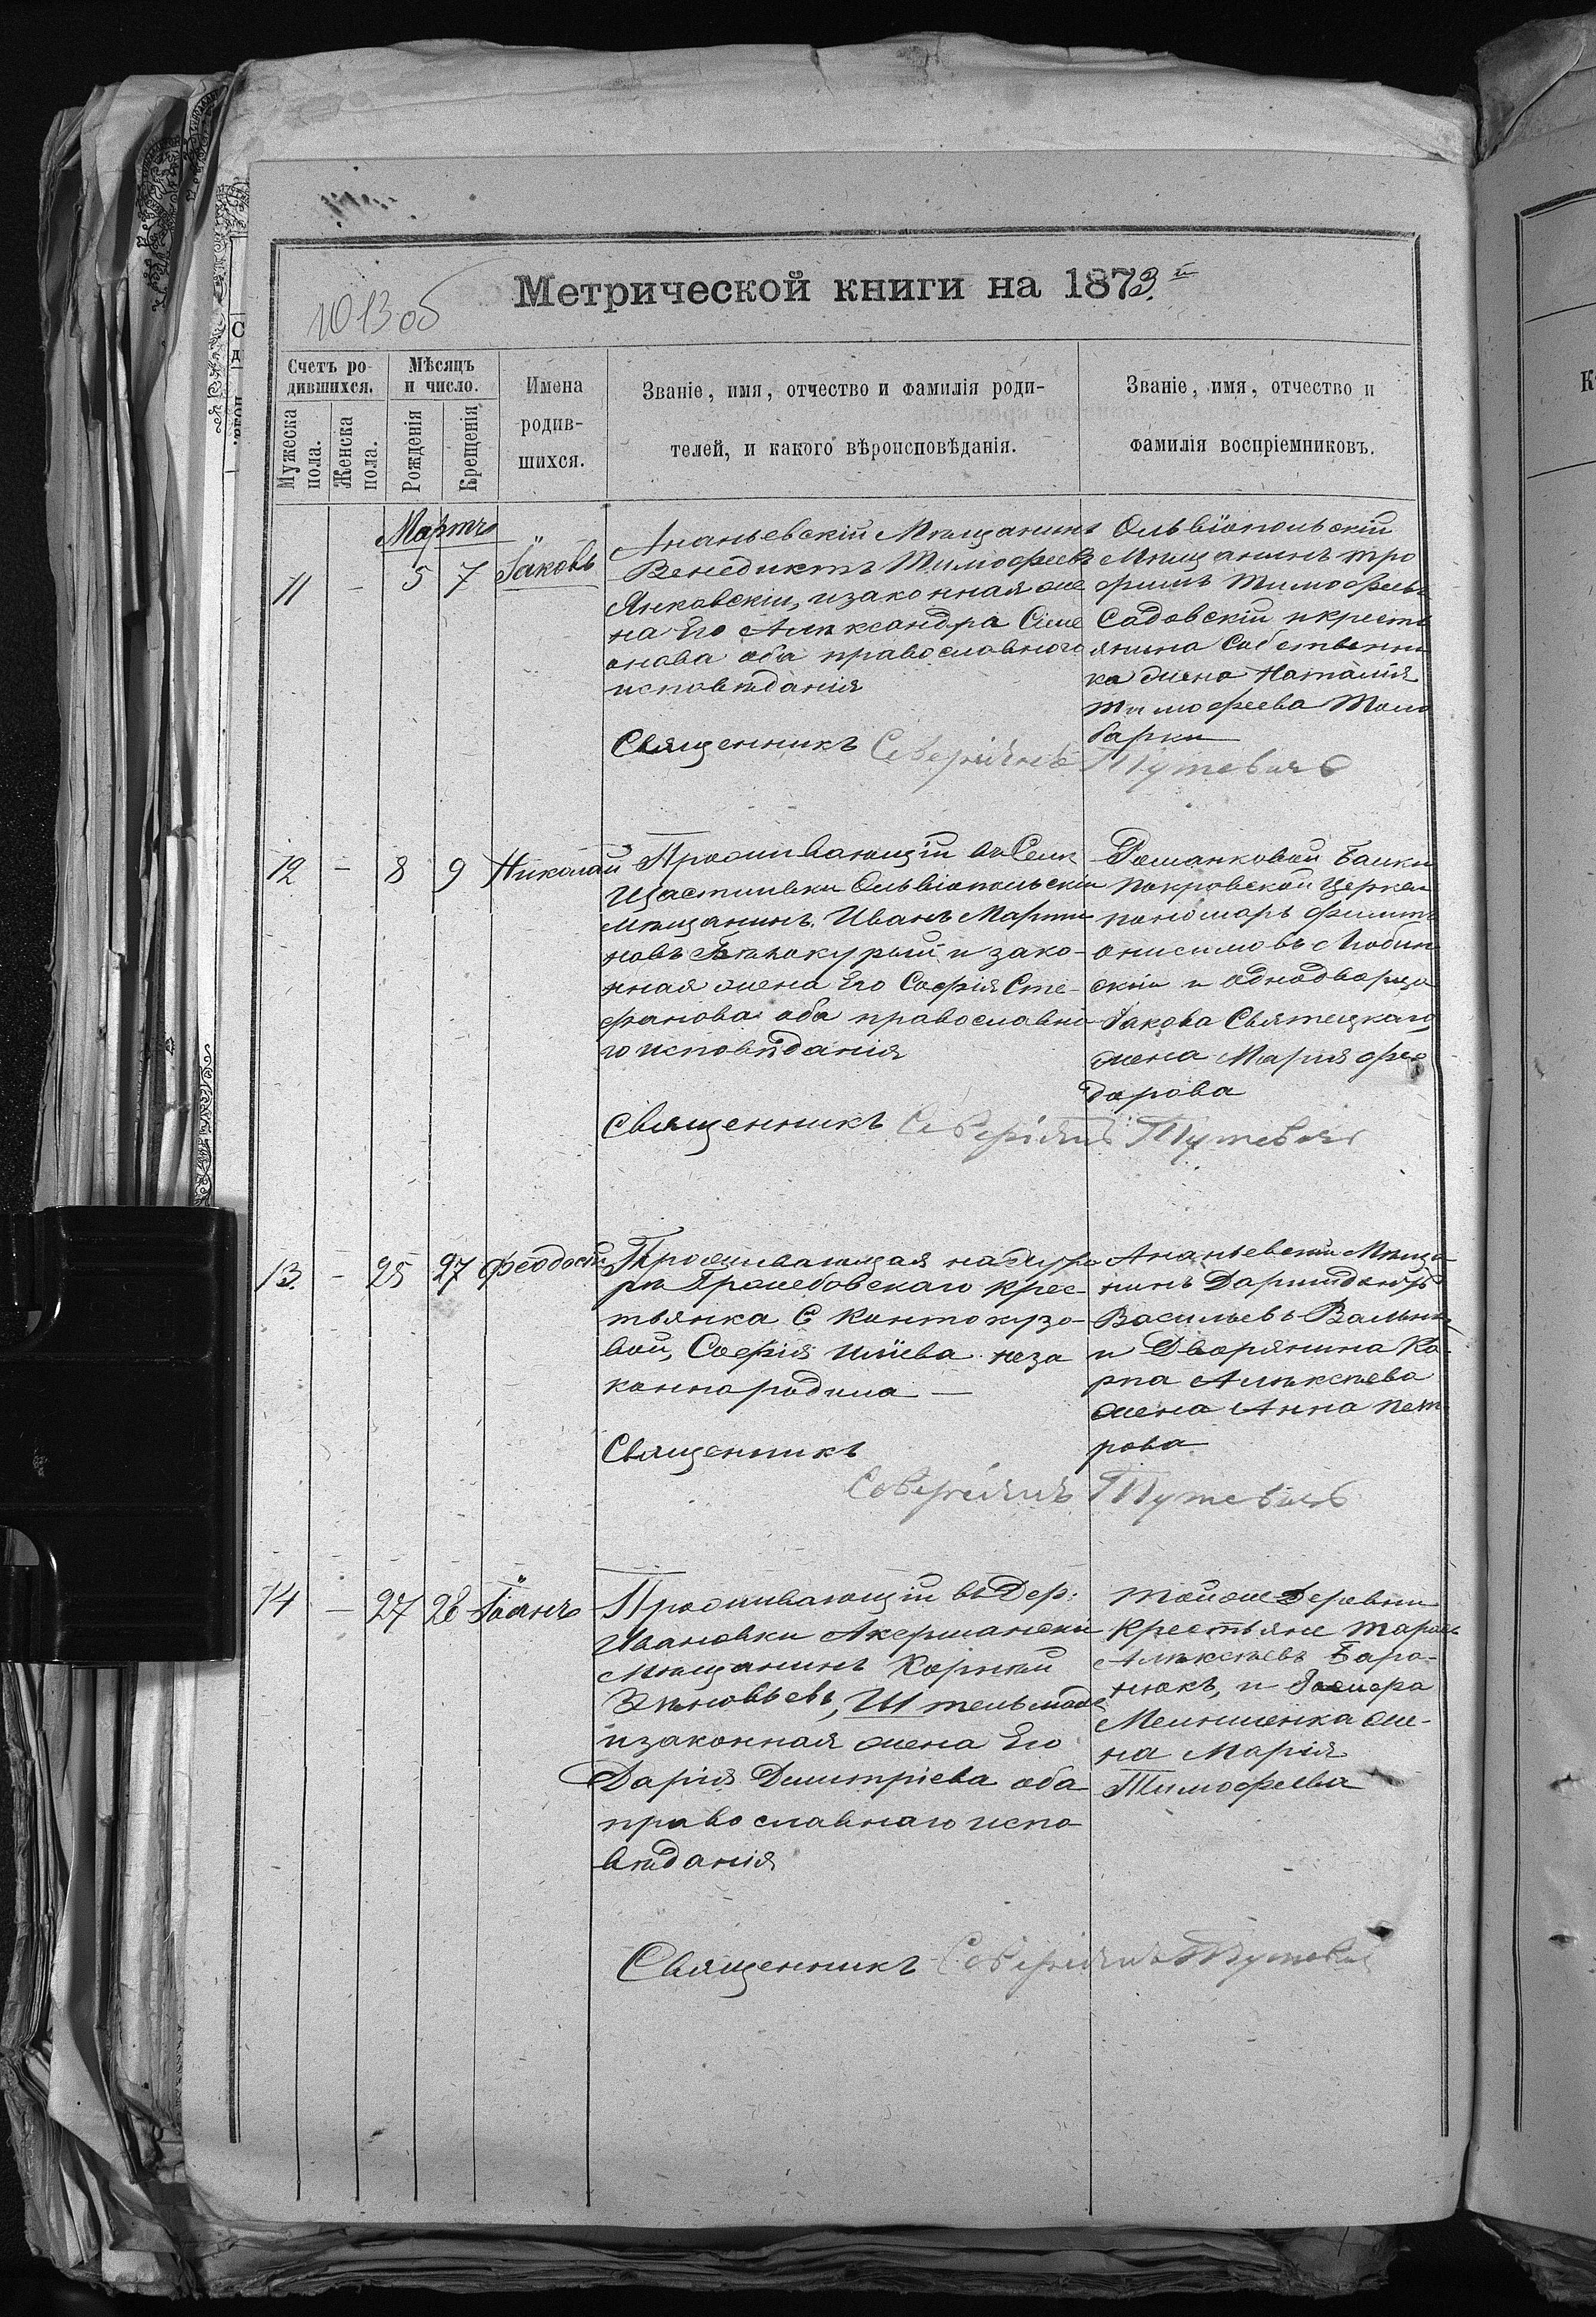 1013 об
Метрической книги на 1873й
Счетъ ро-
дившихся.
Мужеска пола.
Женска пола.
Мѣсяцъ
и число.
Рожденія
Крещенія
Имена
родив-
шихся.
Званіе, имя, отчество и фамилія роди-
телей, и какого вѣроисповѣданія.
Званіе, имя, отчество и
фамилія воспріемниковъ.
Мартъ
11 - 5 7 Іаковъ
Ананьевскій Мѣщанинъ
Венедиктъ Тимофеевъ
Янковскій, и законная же
на Его Александра Симе
онова оба православного
исповѣданія
Ольвіопольскій
Мѣщанинъ тро
фимъ Тимофеевъ
Садовскій и крестъ
янина Собственни
ка жена Наталія
тимофеева
Священникъ Северіянъ
12 - 8 9 Николай
Проживающій въ Селѣ
Щастливки Ольвіопольскій
Мѣщанинъ Иванъ Марти
новъ Бѣлокурый и зако-
нная жена Его Софія Сте-
фанова оба православно
го исповѣданія
Романковой Балки
покровской Церкви
пономарь филипъ
онисимовъ Любин
скій и однодворца
Іакова Святецкаго
жена Марія фео
дорова
Священникъ Северіянъ
13. - 25 27 Феодосій
Проживающая на хуто
рѣ крес-
тьянка С Кантокузо-
вой, Софія Иліева неза
конно родила —
Ананьевскій Мѣща
нинъ
Васильевъ
и Дворянина Ка-
рпа Алексѣева
жена Анна пет
рова
Священникъ
Северіянъ
14 - 27 28 Іоанъ
Проживающій въ Дер:
Ивановки Акерманскій
Мѣщанинъ Корнилій
Зѣновьевъ, Штельмахъ
и законная жена Его
Дарія Димитріева оба
православнаго испо-
вѣданія
тойже Деревни
Крестьяне тарасъ
Алексѣевъ Бара-
нюкъ, и
Мельниченка же-
на Марія
Тимофеева
Священникъ Северіянъ